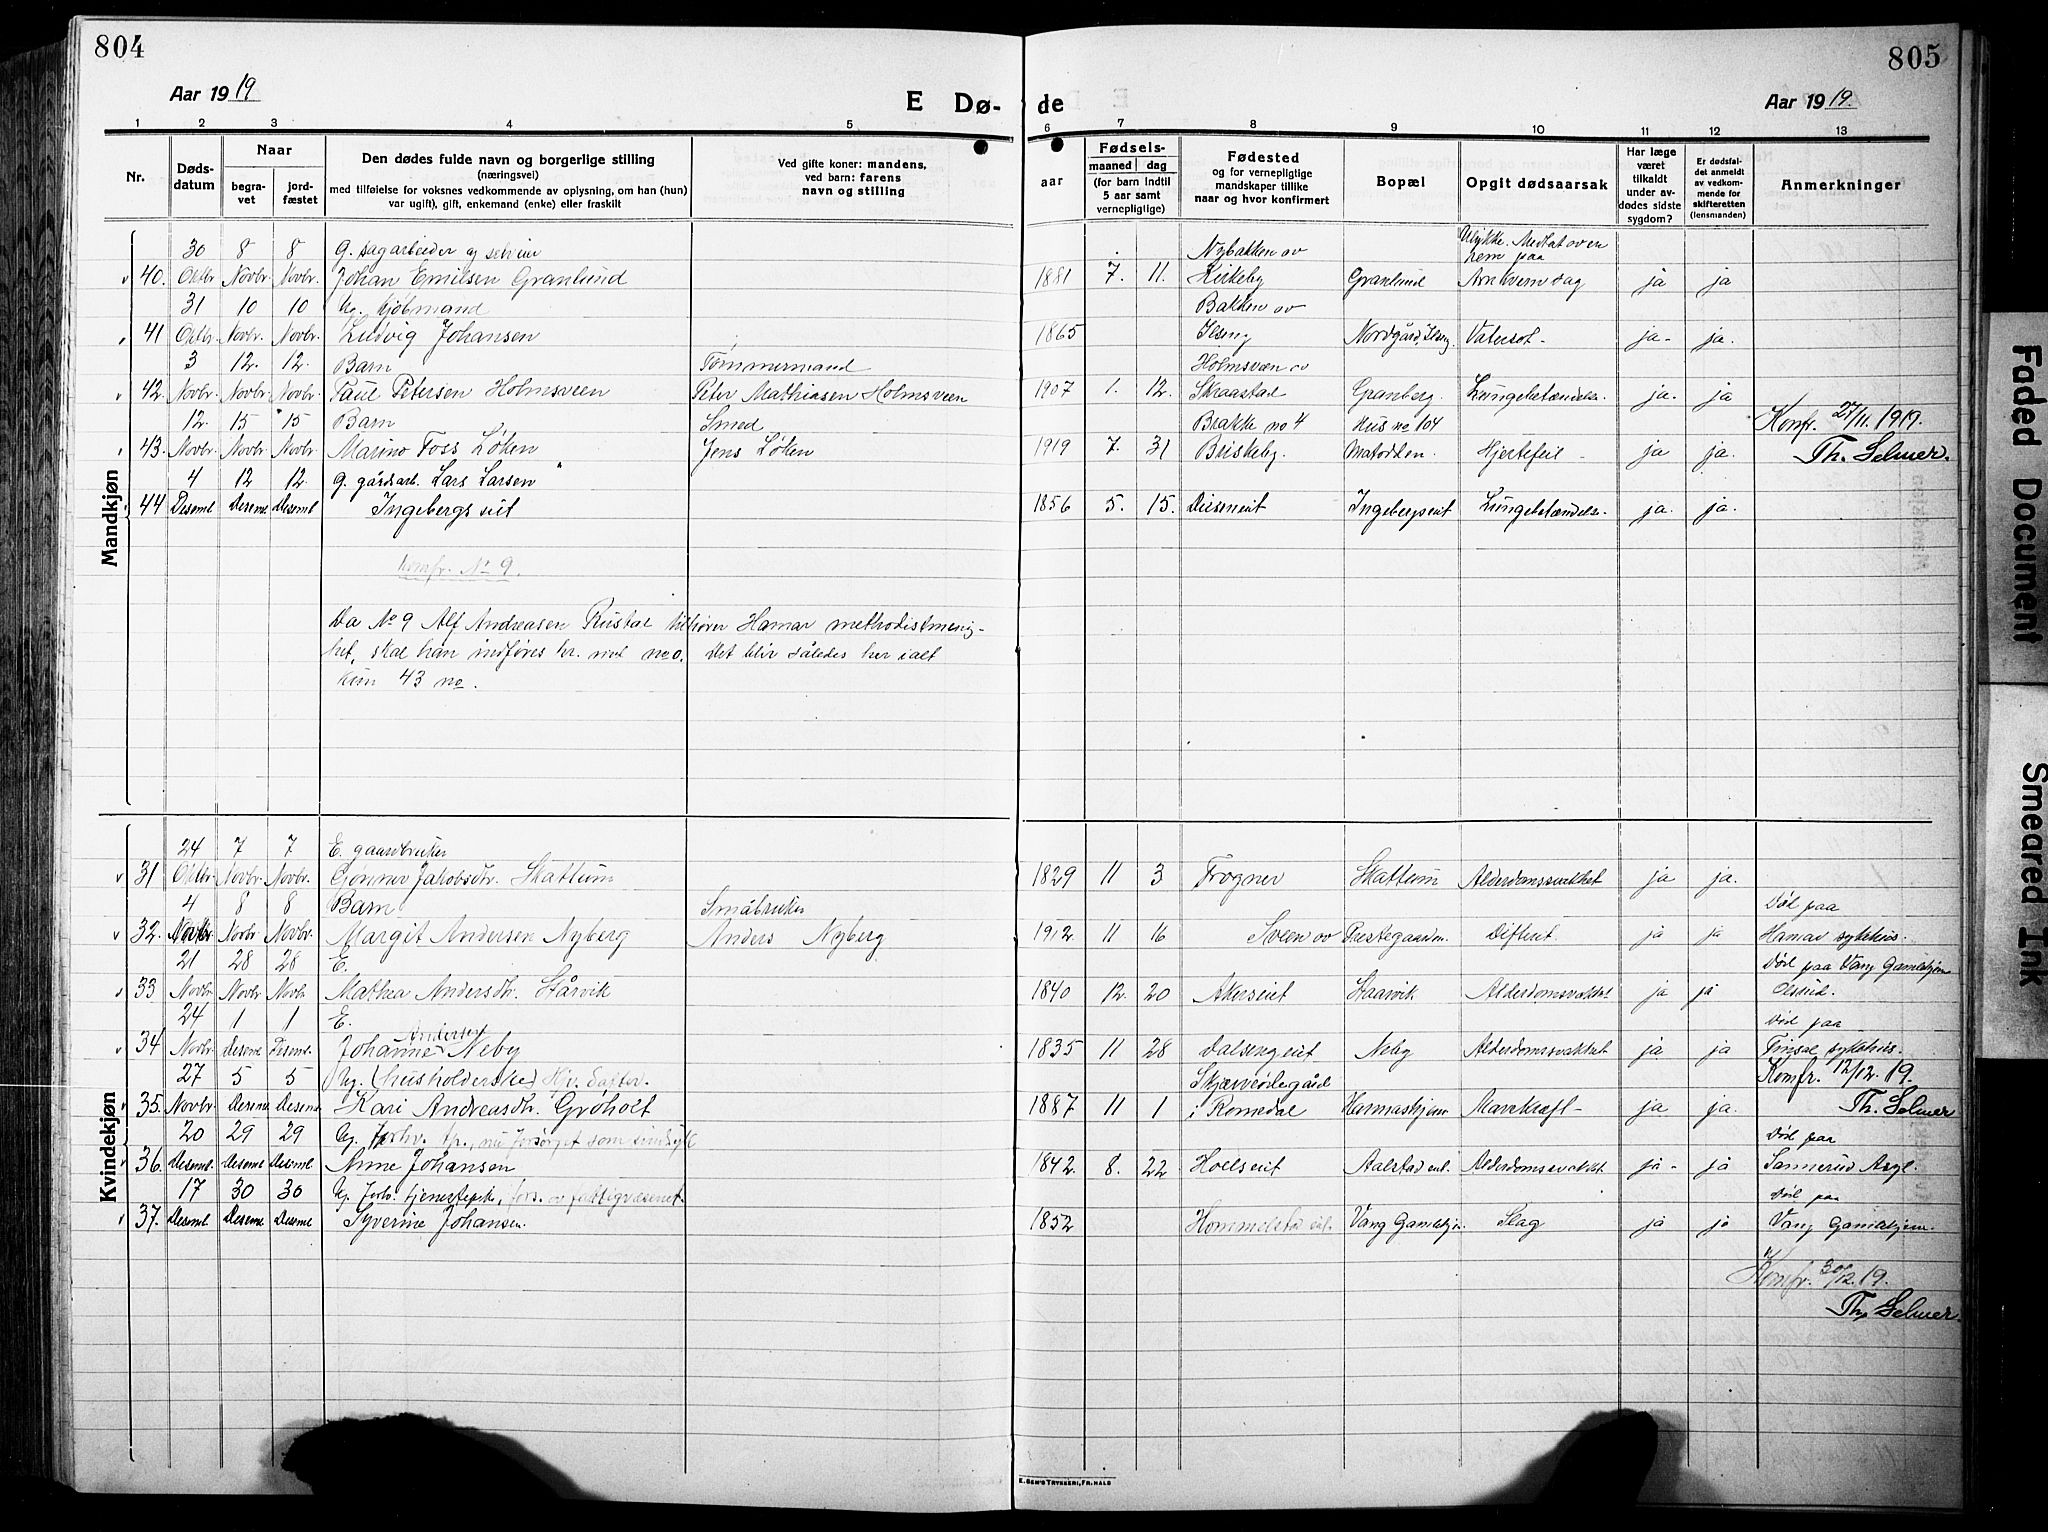 804
805
Aar 1919
E Dø-
de
Aar 1919.
1 2 3 4 5 6 7 8 9 10 11 12 13
Nr.
Døds-
datum
Naar
begra-
vet
jord-
fæstet
Den dødes fulde navn og borgerlige stilling
(næringsvei)
med tilføielse for voksnes vedkommende av oplysning, om han (hun)
var ugift), gift, enkemand (enke) eller fraskilt
Ved gifte koner: mandens,
ved barn: farens
navn og stilling
Fødsels-
aar
maaned dag
(for barn indtil
5 aar samt
vernepligtige)
Fødested
og for vernepligtige
mandskaper tillike
naar og hvor konfirmert
Bopæl
Opgit dødsaarsak
Har læge
været
tilkaldt
under av-
dødes sidste
sygdom?
Er dødsfal-
det anmeldt
av vedkom-
mende for
skifteretten
(lensmanden)
Anmerkninger
Mandkjøn
30 8 8 G. sagarbeider og selveier Nybakken av Ulykke. Medtat av en
40. Oktbr Novbr. Novbr. Johan Emilsen Granlund 1881 7. 11. Kirkeby Granlund ja ja
31 10 10 Ug. kjøbmand Bakken av
41 Oktbr. Novbr. Novbr. Ludvig Johansen 1865 Ilseng Nordgård, Ilseng. Vatersot - ja- ja.
3 12. 12. Barn Tømmermand Holmsveen av
42. Novbr. Novbr. Novbr. Paul Petersen Holmsveen Peter Mathiasen Holmsveen 1907 1. 12. Skraastad Granberg. Lungebetændelse. ja- ja
12. 15 15 Barn Smed Brakke no 4 Hus no 104 Konfr. 27/11. 1919.
43. Novbr. Novbr. Novbr. Marino Foss Løken Jens Løken 1919 7. 31 Briskeby. Hjertefeil - ja ja. Th. Selmer.
4 12 12. g. gårdsarb. Lars Larsen
44 Desembr Desembr Desembr Ingebergseit 1856 5. 15. Ingebergseit Lungebetændelse. ja. ja.
konfr. No 9.
Da No 9 Alf Andreasen Rustad tilhører Hamar methodistmenig-
het, skal han indføres hr. med no 0. Det blir således her ialt
kun 43 no.
Kvindekjøn
24 7 7 E. gaardbruker
31 Oktbr. Novbr. Novbr. Gonner Jakobsdtr. Skattum 1829 11 3 Frogner Skattum Alderdomssvakhet ja ja.
4 8 8 Barn Småbruker Død paa
32. Novbr. Novbr. Novbr. Margit Andersen Nyberg Anders Nyberg 1912. 11 16 Sveen av Prestegaarden. Difterit. ja ja Hamar sykehus.
21 28 28 E. Død paa Vang Gamlehjem
33 Novbr Novbr Novbr Mathea Andersdtr. Stårvik 1840 12. 20 Akerseiet Staarvik Alderdomsvakhet ja ja Olsrud.
24 1 1 E. Andersen Død paa
34 Novbr. Desembr Desembr. Johanne Neby 1835 11 28 Dalsengeiet Neby Alderdomssvakhet ja ja Finsal sykehus.
27 5 5 Ug. (husholderske) Skjærverødegård Konfr. 12/12. 19.
35. Novbr Desembr Desembr Kari Andreasdtr. Gröholt 1887 11 1 i Romedal Harmashjem Mavekræft - ja ja. Th. Selmer
20 29 29 Ug. forhv. tp., nu forsørget som sindssyk Død paa
36. Desembr. Desembr. Desembr Anne Johansen 1842. 8. 22 Hoelseiet Aalstadeiet. Alderdomssvakhet. ja- ja Sannerud Asyl.
17 30 30 Ug. forhv. tjenestepike, fors. av fattigvæsenet. Død paa
37. Desembr Desembr Desembr Syverine Johansen. 1852 Hommelstad eiet. Vang Gamlehjem. Slag ja ja Vang Gamlehjem.
Konfr. 30/12. 19.
Th. Selmer.
E. SEM'S TRYKKERI, FR.HALD
Faded Document
Smeared Ink